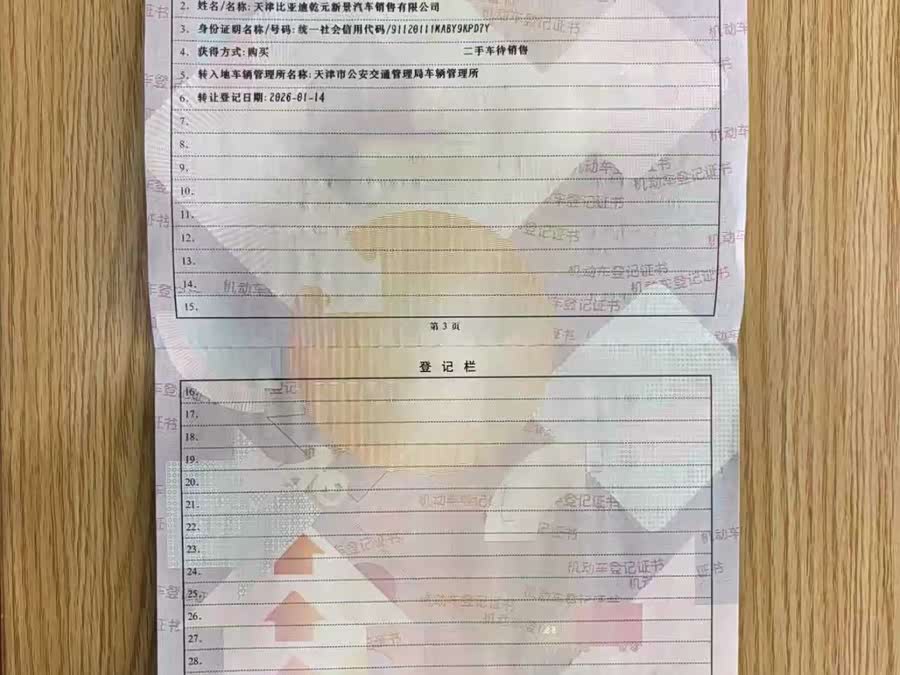 2. 姓名/名称:天津比亚迪乾元新景汽车销售有限公司
3. 身份证明名称/号码:统一社会信用代码/91120111MABY9KPD7Y
4. 获得方式:购买 二手车待销售
5. 转入地车辆管理所名称:天津市公安交通管理局车辆管理所
6. 转让登记日期:2026-01-14
7.
8.
9.
10.
11.
12.
13.
14.
15.
第 3 页
登 记 栏
16.
17.
18.
19.
20.
21.
22.
23.
24.
25.
26.
27.
28.